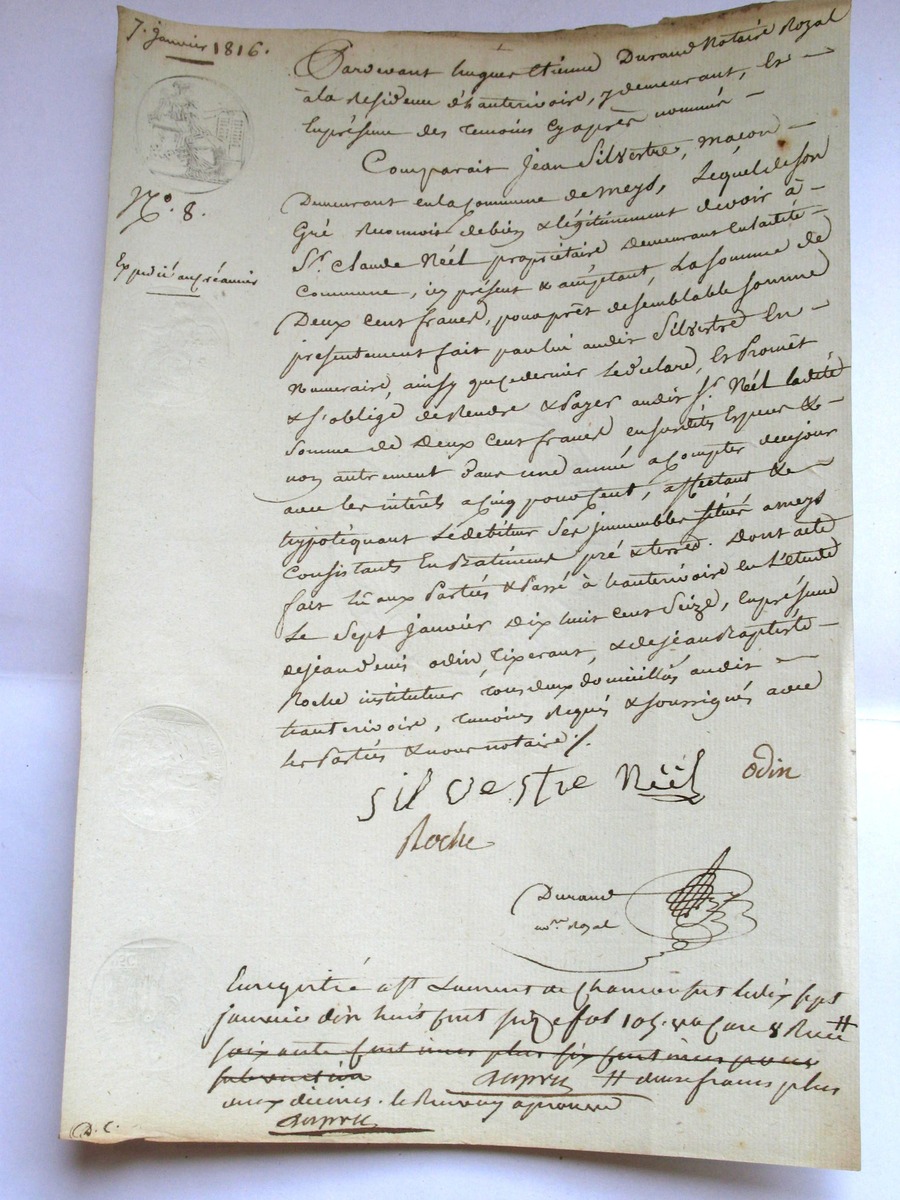 7. janvier 1816.
Pardevant hugues Etienne Durand Notaire Royal
à la Residence d'hauterivoire, y demeurant, Et
En présence des temoins Cy après nommés
Comparait Jean Silvestre, maçon
Demeurant en la Commune de meys, Lequel de son
N.o 8.
Gré Reconnoit debien & légitimement devoir à
Sr. Claude Néel propriétaire Demeurant en ladite
Expedié au créancier
Commune, icy présent & acceptant, La somme de
Deux cent francs, pour prêt de semblable somme
présentement fait par lui audit Silvestre En
Numeraire, ainsy que ce dernier Le déclare, Et Promet
& s'oblige de Rendre & Payer audit Sr. Néel ladite
Somme de Deux Cent francs en susdites Espèces &
non autrement dans une année a compter de ce jour
avec les intérêts a Cinq pour Cent, affectant &
hypotéquant Le debiteur Ses immeubles situés a meys
Consistants En Batiment pré & terres. Dont acte
fait Lû aux Parties & Passé à hauterivoire en L'étude
Le Sept Janvier Dix huit Cent Seize, En présence
de jean denis odin Tixerant, & de jean Baptiste
Roche instituteur tous deux domiciliés audit
hauterivoire, Temoins Requis & soussignés avec
Les Parties & nous notaire ./.
silvestre Néel odin
Roche
Durand
nore. Royal
Enregistré a St Laurent de Chamousset le dix sept
janvier dix huit cent seize fol 105. vo Case 8 Recu #
soixante centimes plus six centimes pour
subvention
# deux francs plus
deux décimes. le Renvoy aprouvé
D. C.